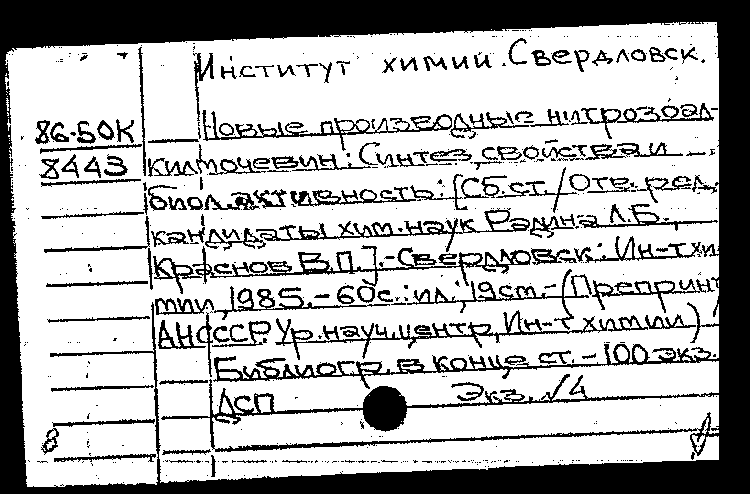 Институт химии. Свердловск.
86-50К Новые производные нитрозоал-
8443 килмочевин: Синтез, свойства и
биол. активность: [Сб. ст. / Отв. ред.
кандидаты хим. наук Радина Л.Б.,
Краснов В.П.]. - Свердловск: Ин-т хи-
мии, 1985. - 60с.: ил.; 19см. - (Препринт/
АН СССР. Ур. науч. центр, Ин-т химии)
Библиогр. в конце ст. - 100 экз.
ДСП Экз. №4
8